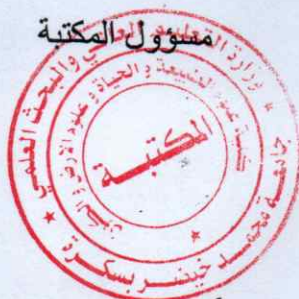 مسؤول المكتبة
وزارة التعليم العالي والبحث العلمي
كلية علوم الطبيعة و الحياة و علوم الأرض و الكون
المكتبة
جامعة محمد خيضر بسكرة